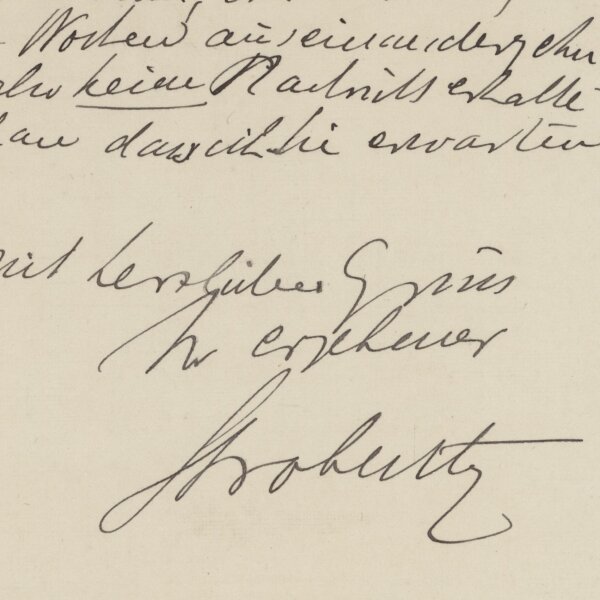 Wochen auseinanderzehn
keine Nachricht erhalte
dass ich Sie erwarten
mit herzlichem Gruss
Ihr ergebener